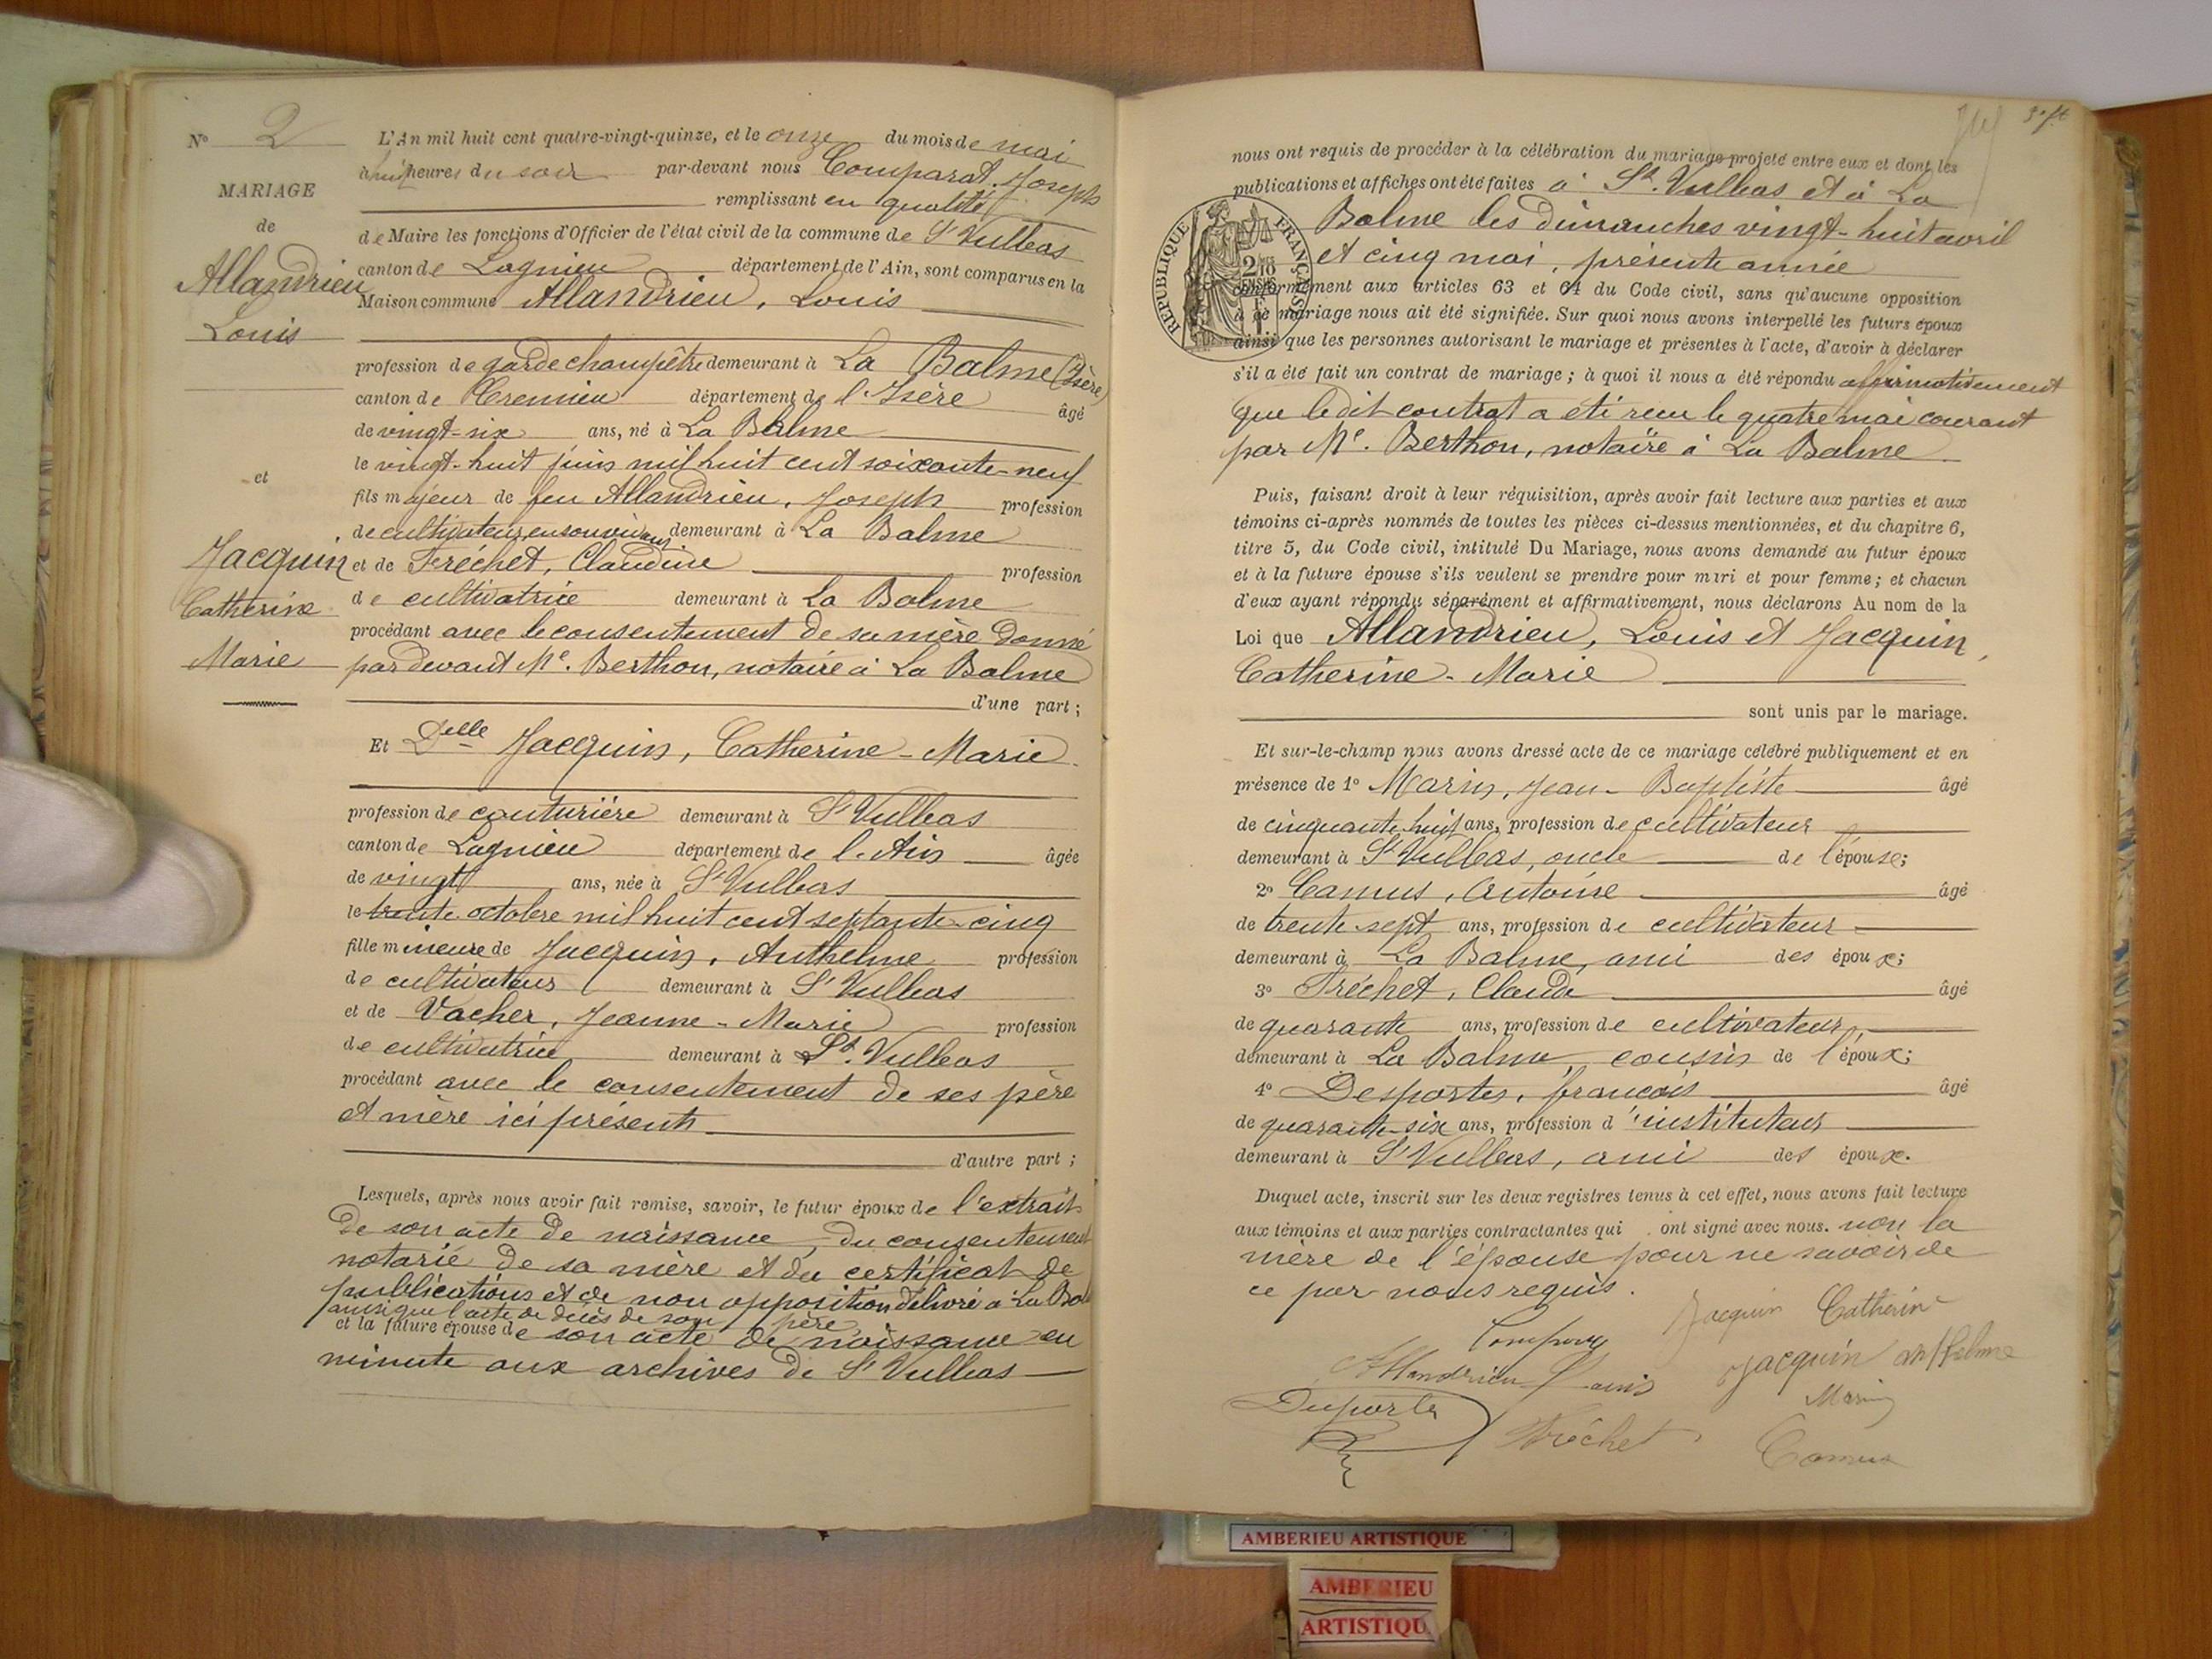 N° 2
MARIAGE
de
Allandrieu
Louis
et
Jacquin
Catherine
Marie
L'An mil huit cent quatre-vingt-quinze, et le onze du mois de mai
à huit heures du soir par-devant nous Comparat Joseph
remplissant en qualité
de Maire les fonctions d'Officier de l'état civil de la commune de St Vulbas
canton de Lagnieu département de l'Ain, sont comparus en la
Maison commune Allandrieu, Louis
profession de garde champêtre demeurant à La Balme (Isère)
canton de Cremieu département de l'Isère âgé
de vingt-six ans, né à La Balme
le vingt-huit juin mil huit cent soixante-neuf
fils majeur de feu Allandrieu, Joseph profession
de cultivateur, en son vivant demeurant à La Balme
et de Fréchet, Claudine profession
de cultivatrice demeurant à La Balme
procédant avec le consentement de sa mère donné
par devant Me. Berthon, notaire à La Balme
d'une part ;
Et Delle Jacquin, Catherine-Marie
profession de couturière demeurant à St Vulbas
canton de Lagnieu département de l'Ain âgée
de vingt ans, née à St Vulbas
le trente octobre mil huit cent septante-cinq
fille mineure de Jacquin, Anthelme profession
de cultivateur demeurant à St Vulbas
et de Vacher, Jeanne-Marie profession
de cultivatrice demeurant à St. Vulbas
procédant avec le consentement de ses père
et mère ici présents
d'autre part ;
Lesquels, après nous avoir fait remise, savoir, le futur époux de l'extrait
de son acte de naissance, du consentement
notarié de sa mère et du certificat de
publications et de non opposition délivré à La Bal
ainsi que l'acte de décès de son père
et la future épouse de son acte de naissance en
minute aux archives de St Vulbas
nous ont requis de procéder à la célébration du mariage projeté entre eux et dont les
publications et affiches ont été faites à St. Vulbas et à La
Balme les dimanches vingt-huit avril
et cinq mai, présente année
conformément aux articles 63 et 64 du Code civil, sans qu'aucune opposition
à ce mariage nous ait été signifiée. Sur quoi nous avons interpellé les futurs époux
ainsi que les personnes autorisant le mariage et présentes à l'acte, d'avoir à déclarer
s'il a été fait un contrat de mariage ; à quoi il nous a été répondu affirmativement
que ledit contrat a été reçu le quatre mai courant
par Me. Berthon, notaire à La Balme
RÉPUBLIQUE FRANÇAISE
Puis, faisant droit à leur réquisition, après avoir fait lecture aux parties et aux
témoins ci-après nommés de toutes les pièces ci-dessus mentionnées, et du chapitre 6,
titre 5, du Code civil, intitulé Du Mariage, nous avons demandé au futur époux
et à la future épouse s'ils veulent se prendre pour mari et pour femme ; et chacun
d'eux ayant répondu séparément et affirmativement, nous déclarons Au nom de la
Loi que Allandrieu, Louis et Jacquin,
Catherine-Marie
sont unis par le mariage.
Et sur-le-champ nous avons dressé acte de ce mariage célébré publiquement et en
présence de 1° Marin, Jean-Baptiste âgé
de cinquante huit ans, profession de cultivateur
demeurant à St Vulbas, oncle de l'épouse ;
2° Camus, Antoine âgé
de trente-sept ans, profession de cultivateur
demeurant à La Balme, ami des époux ;
3° Fréchet, Claude âgé
de quarante ans, profession de cultivateur,
demeurant à La Balme, cousin de l'époux ;
4° Desportes, françois âgé
de quarante-six ans, profession d'instituteur
demeurant à St Vulbas, ami des époux.
Duquel acte, inscrit sur les deux registres tenus à cet effet, nous avons fait lecture
aux témoins et aux parties contractantes qui ont signé avec nous. non la
mère de l'épouse pour ne savoir de
ce par nous requis.
Jacquin Catherine
Allandrieu Louis
Jacquin anthelme
Marin
Fréchet
Camus
AMBERIEU ARTISTIQUE
AMBERIEU
ARTISTIQU